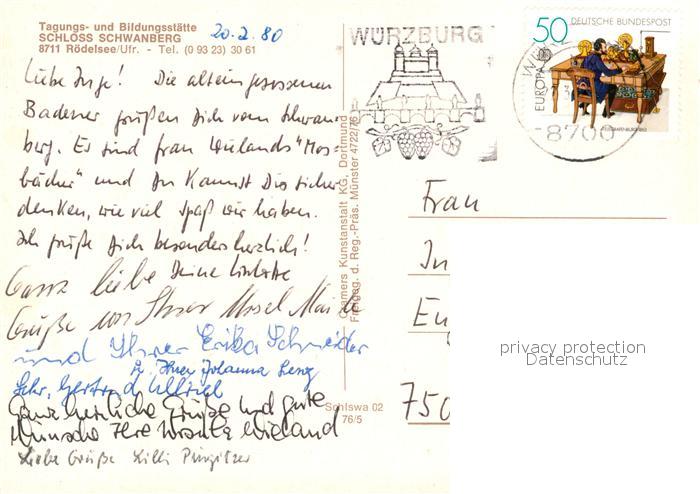 Tagungs- und Bildungsstätte
SCHLOSS SCHWANBERG
8711 Rödelsee/Ufr. - Tel. (0 93 23) 30 61
20.2.80
WÜRZBURG
50 DEUTSCHE BUNDESPOST
EUROPA
8700
Liebe Inge! Die alteingesessenen
Badener grüßen Dich vom Schwan-
berg. Es sind Frau Wielands "Mos-
bacher" und Du kannst Dir sicher
denken, wie viel Spaß wir haben.
Ich grüße Dich besonders herzlich!
Deine
Ganz liebe
Grüße von Ihrer
und Ihrer Erika Schneider
u. Ihrer Johanna
Schr. Gertrud Ullrich
Ganz herzliche Grüße und gute
Wünsche Ihre Ursula Wieland
Liebe Grüße Lilli
Cramers Kunstanstalt KG, Dortmund
Freigeg. d. Reg.-Präs. Münster 4722/76
Schlswa 02
76/5
Frau
In
Eu
750
privacy protection
Datenschutz